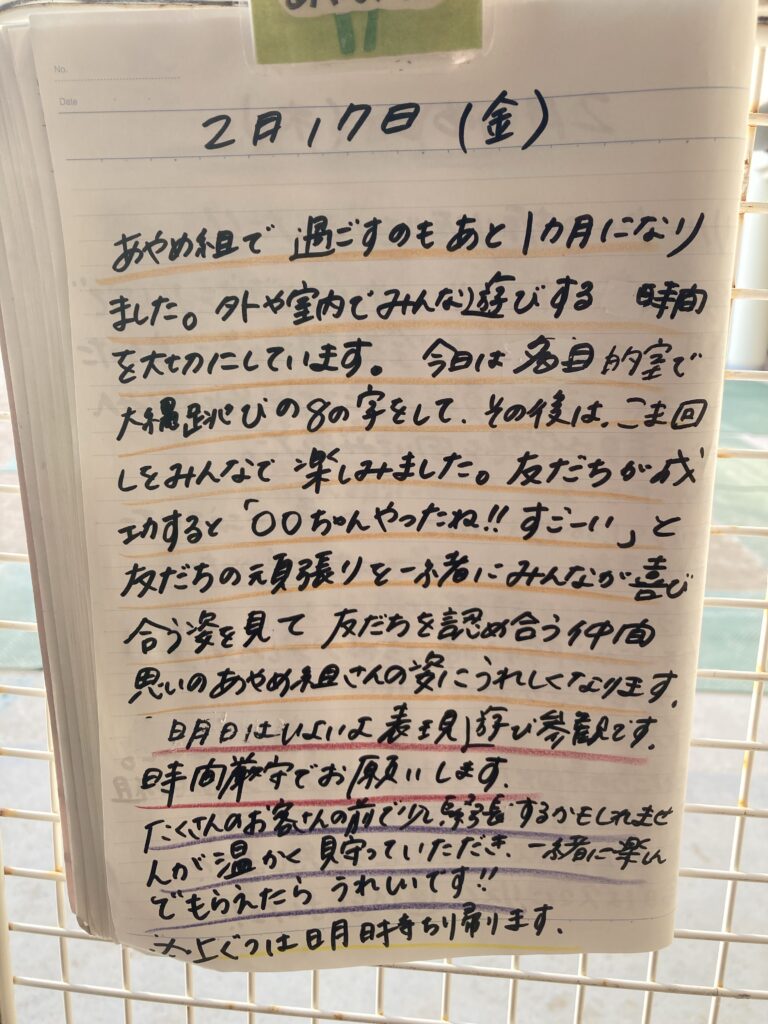 No.
Date
2月17日(金)
あやめ組で過ごすのもあと1カ月になり
ました。外や室内でみんな遊びする 時間
を大切にしています。今日は多目的室で
大縄跳びの8の字をして、その後は、こま回
しをみんなで楽しみました。友だちが成
功すると「〇〇ちゃんやったね!!すごーい」と
友だちの頑張りを一緒にみんなが喜び
合う姿を見て 友だちを認め合う仲間
思いのあやめ組さんの姿にうれしくなります。
明日はいよいよ表現遊び参観です。
時間厳守でお願いします。
たくさんのお客さんの前で少し緊張するかもしれませ
んが温かく見守っていただき、一緒に楽しん
でもらえたらうれしいです!!
※上ぐつは明日持ち帰ります。